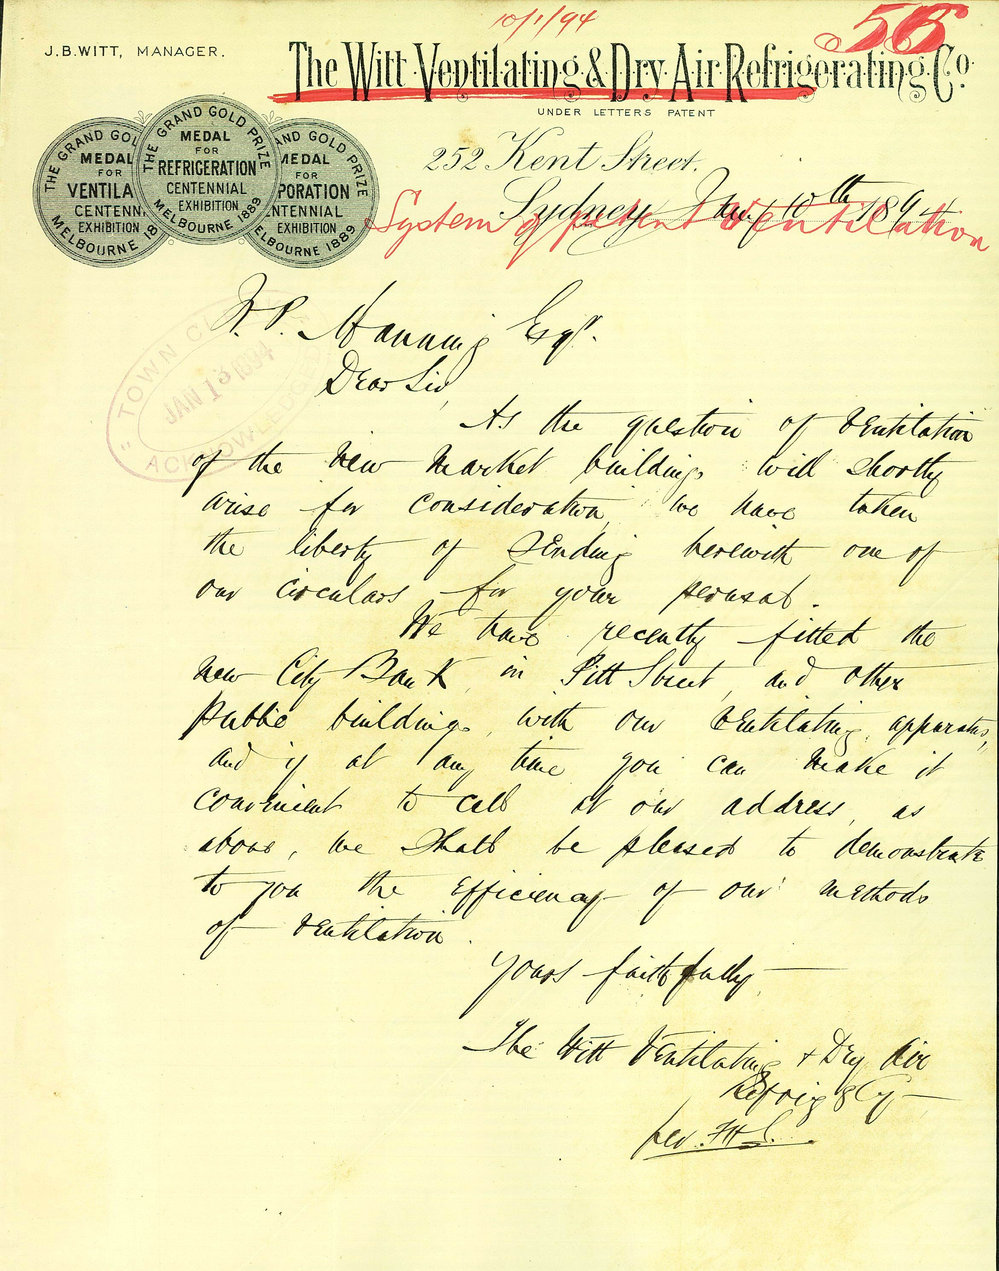 10/1/94
56
J. B. WITT, MANAGER.
The Witt Ventilating & Dry Air Refrigerating Co.
UNDER LETTERS PATENT
252 Kent Street.
Sydney Jany 10th 1894
System of patent Ventilation
THE GRAND GOL
MEDAL
FOR
VENTILA
CENTENN
EXHIBITION
MELBOURNE 18
THE GRAND GOLD PRIZE
MEDAL
FOR
REFRIGERATION
CENTENNIAL
EXHIBITION
MELBOURNE 1889
AND GOLD PRIZE
MEDAL
FOR
PORATION
NTENNIAL
EXHIBITION
ELBOURNE 1889
TOWN CL
JAN 13 1894
ACKNOWLEDGED
W. P. Manning Esqr.
Dear Sir,
As the question of Ventilation
of the New Market buildings will shortly
arise for consideration, we have taken
the liberty of sending herewith one of
our circulars for your perusal.
We have recently fitted the
New City Bank, in Pitt Street, and other
public buildings, with our Ventilating apparatus,
and if at any time you can make it
convenient to call at our address, as
above, we shall be pleased to demonstrate
to you the efficiency of our methods
of Ventilation.
Yours faithfully
The Witt Ventilating & Dry Air
Refrig & Cy
per.